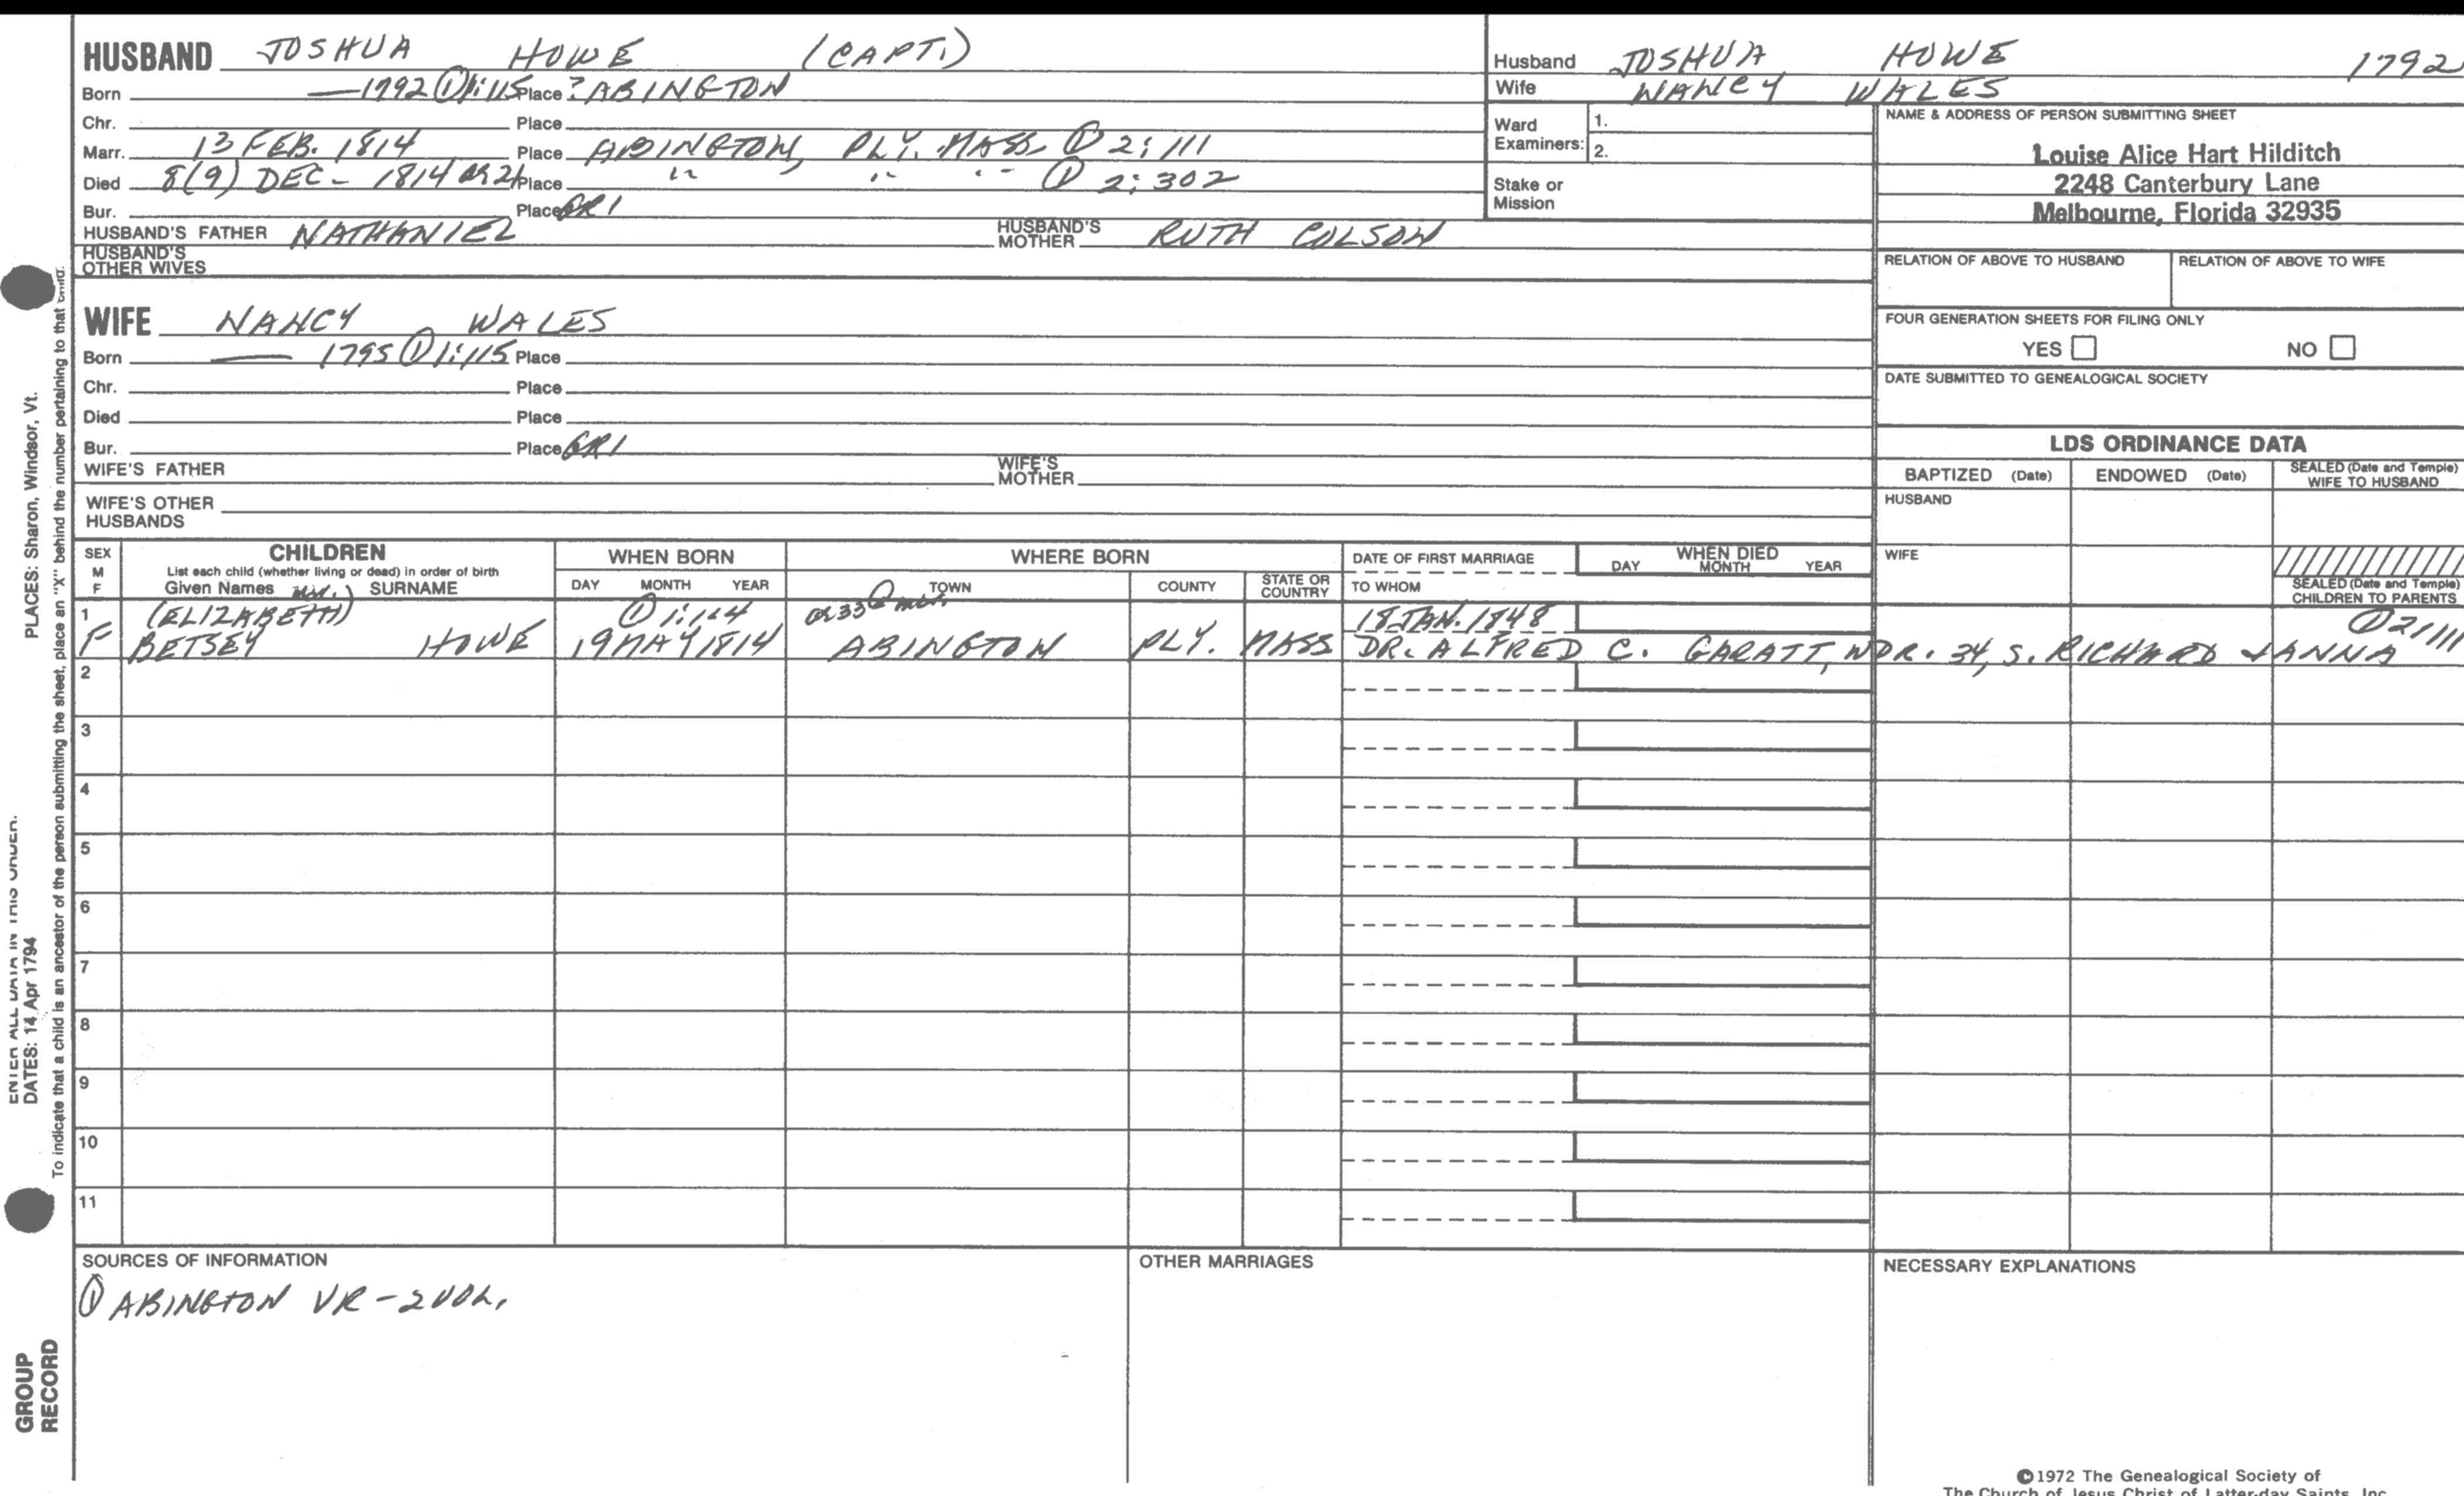 HUSBAND JOSHUA HOWE (CAPT.)
Born — 1792 ① 1:115 Place ? ABINGTON
Chr. Place
Marr. 13 FEB. 1814 Place ABINGTON, PLY. MASS. ① 2:111
Died 8(9) DEC - 1814 AE 21 Place " " " ① 2:302
Bur. Place GR1
HUSBAND'S FATHER NATHANIEL HUSBAND'S MOTHER RUTH COLSON
HUSBAND'S OTHER WIVES
WIFE NANCY WALES
Born — 1795 ① 1:115 Place
Chr. Place
Died Place
Bur. Place GR1
WIFE'S FATHER WIFE'S MOTHER
WIFE'S OTHER HUSBANDS
Husband JOSHUA HOWE 1792
Wife NANCY WALES
Ward Examiners: 1.
2.
Stake or Mission
NAME & ADDRESS OF PERSON SUBMITTING SHEET
Louise Alice Hart Hilditch
2248 Canterbury Lane
Melbourne, Florida 32935
RELATION OF ABOVE TO HUSBAND RELATION OF ABOVE TO WIFE
FOUR GENERATION SHEETS FOR FILING ONLY
YES NO
DATE SUBMITTED TO GENEALOGICAL SOCIETY
LDS ORDINANCE DATA
BAPTIZED (Date) ENDOWED (Date) SEALED (Date and Temple) WIFE TO HUSBAND
HUSBAND
WIFE
SEALED (Date and Temple) CHILDREN TO PARENTS
SEX M F
CHILDREN
List each child (whether living or dead) in order of birth
Given Names SURNAME
WHEN BORN
DAY MONTH YEAR
WHERE BORN
TOWN COUNTY STATE OR COUNTRY
DATE OF FIRST MARRIAGE
TO WHOM
WHEN DIED
DAY MONTH YEAR
1 (ELIZABETH) ① 1:114 AE 33 @ mar. 18 JAN. 1848 ① 2/111
F BETSEY HOWE 19 MAY 1814 ABINGTON PLY. MASS DR. ALFRED C. GARATT, WDR. 34, S. RICHARD & ANNA
2
3
4
5
6
7
8
9
10
11
SOURCES OF INFORMATION
① ABINGTON VR - 2 VOL.
OTHER MARRIAGES
NECESSARY EXPLANATIONS
©1972 The Genealogical Society of
The Church of Jesus Christ of Latter-day Saints, Inc.
ENTER ALL DATA IN THIS ORDER:
DATES: 14 Apr 1794
PLACES: Sharon, Windsor, Vt.
To indicate that a child is an ancestor of the person submitting the sheet, place an "X" behind the number pertaining to that child.
GROUP
RECORD